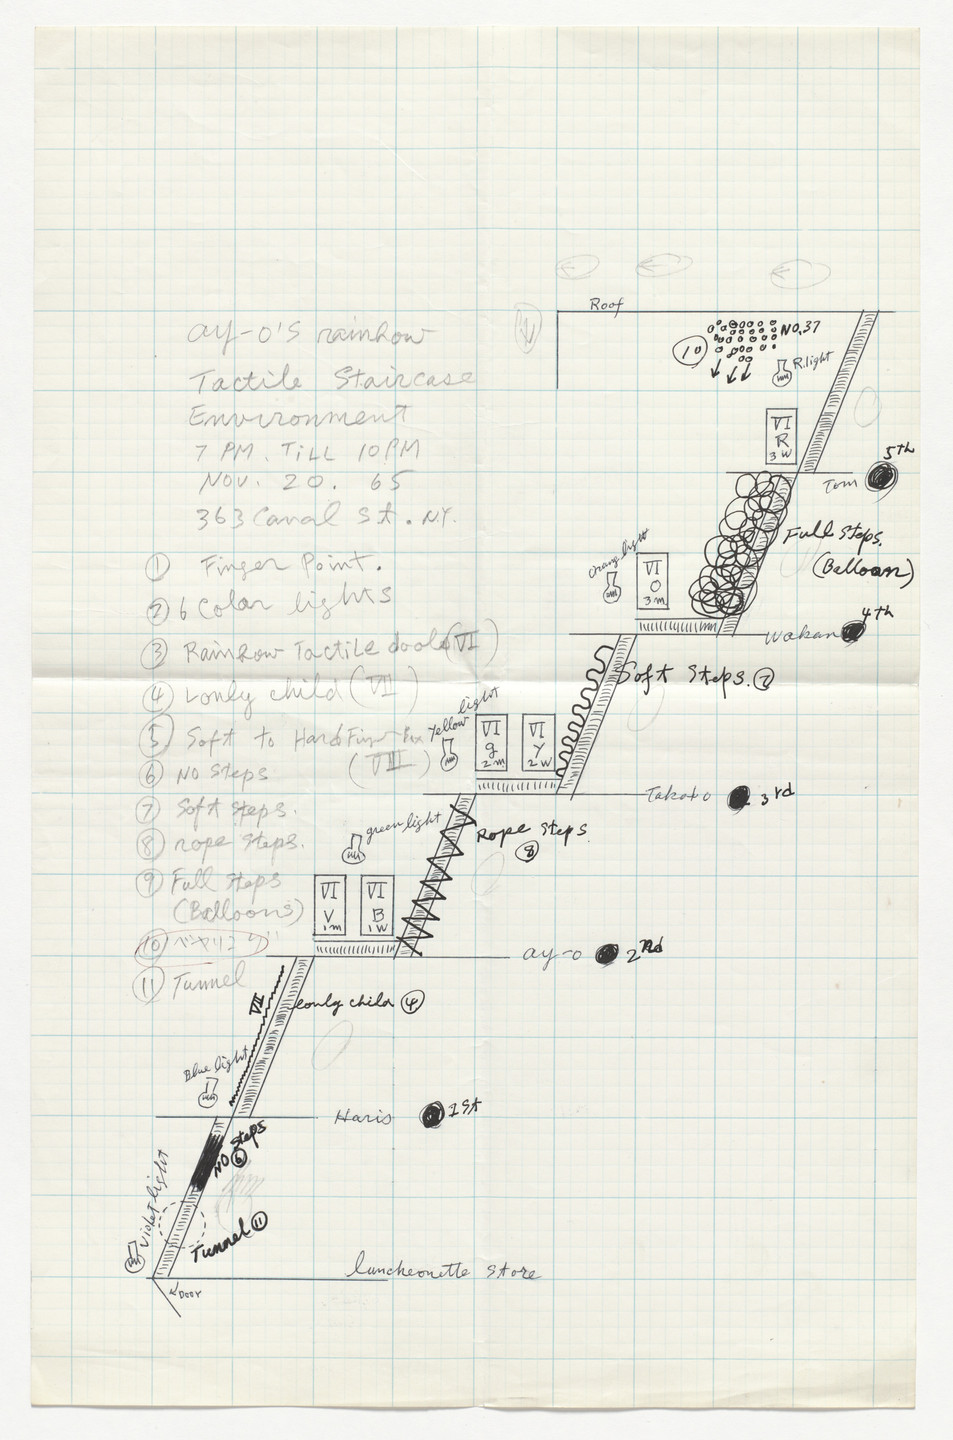 ay-o's rainbow
Tactile Staircase
Environment
7 PM. TiLL 10PM
NOV. 20. 65
363 Canal St. N.Y.
① Finger Point.
② 6 Color lights
③ Rainbow Tactile doole (VI)
④ Lonly child (VII)
⑤ Soft to Hard Finger Box
(VIII)
⑥ NO Steps
⑦ Soft Steps.
⑧ rope Steps.
⑨ Full Steps
(Balloons)
⑩ ベヤリング
⑪ Tunnel
Roof
⑩
NO.37
R.light
VI
R
3 W
5th
Tom
Full Steps.
(Balloon)
Orange light
VI
O
3 m
4th
Wakan
Soft Steps. ⑦
Yellow light
VI
g
2 m
VI
Y
2 W
Takako
3rd
Rope Steps
⑧
green light
VI
V
1 m
VI
B
1 W
ay-o
2nd
VII
Lonly child ④
Blue light
Haris
1St
NO Steps
⑥
Violet light
Tunnel ⑪
Door
luncheonette store